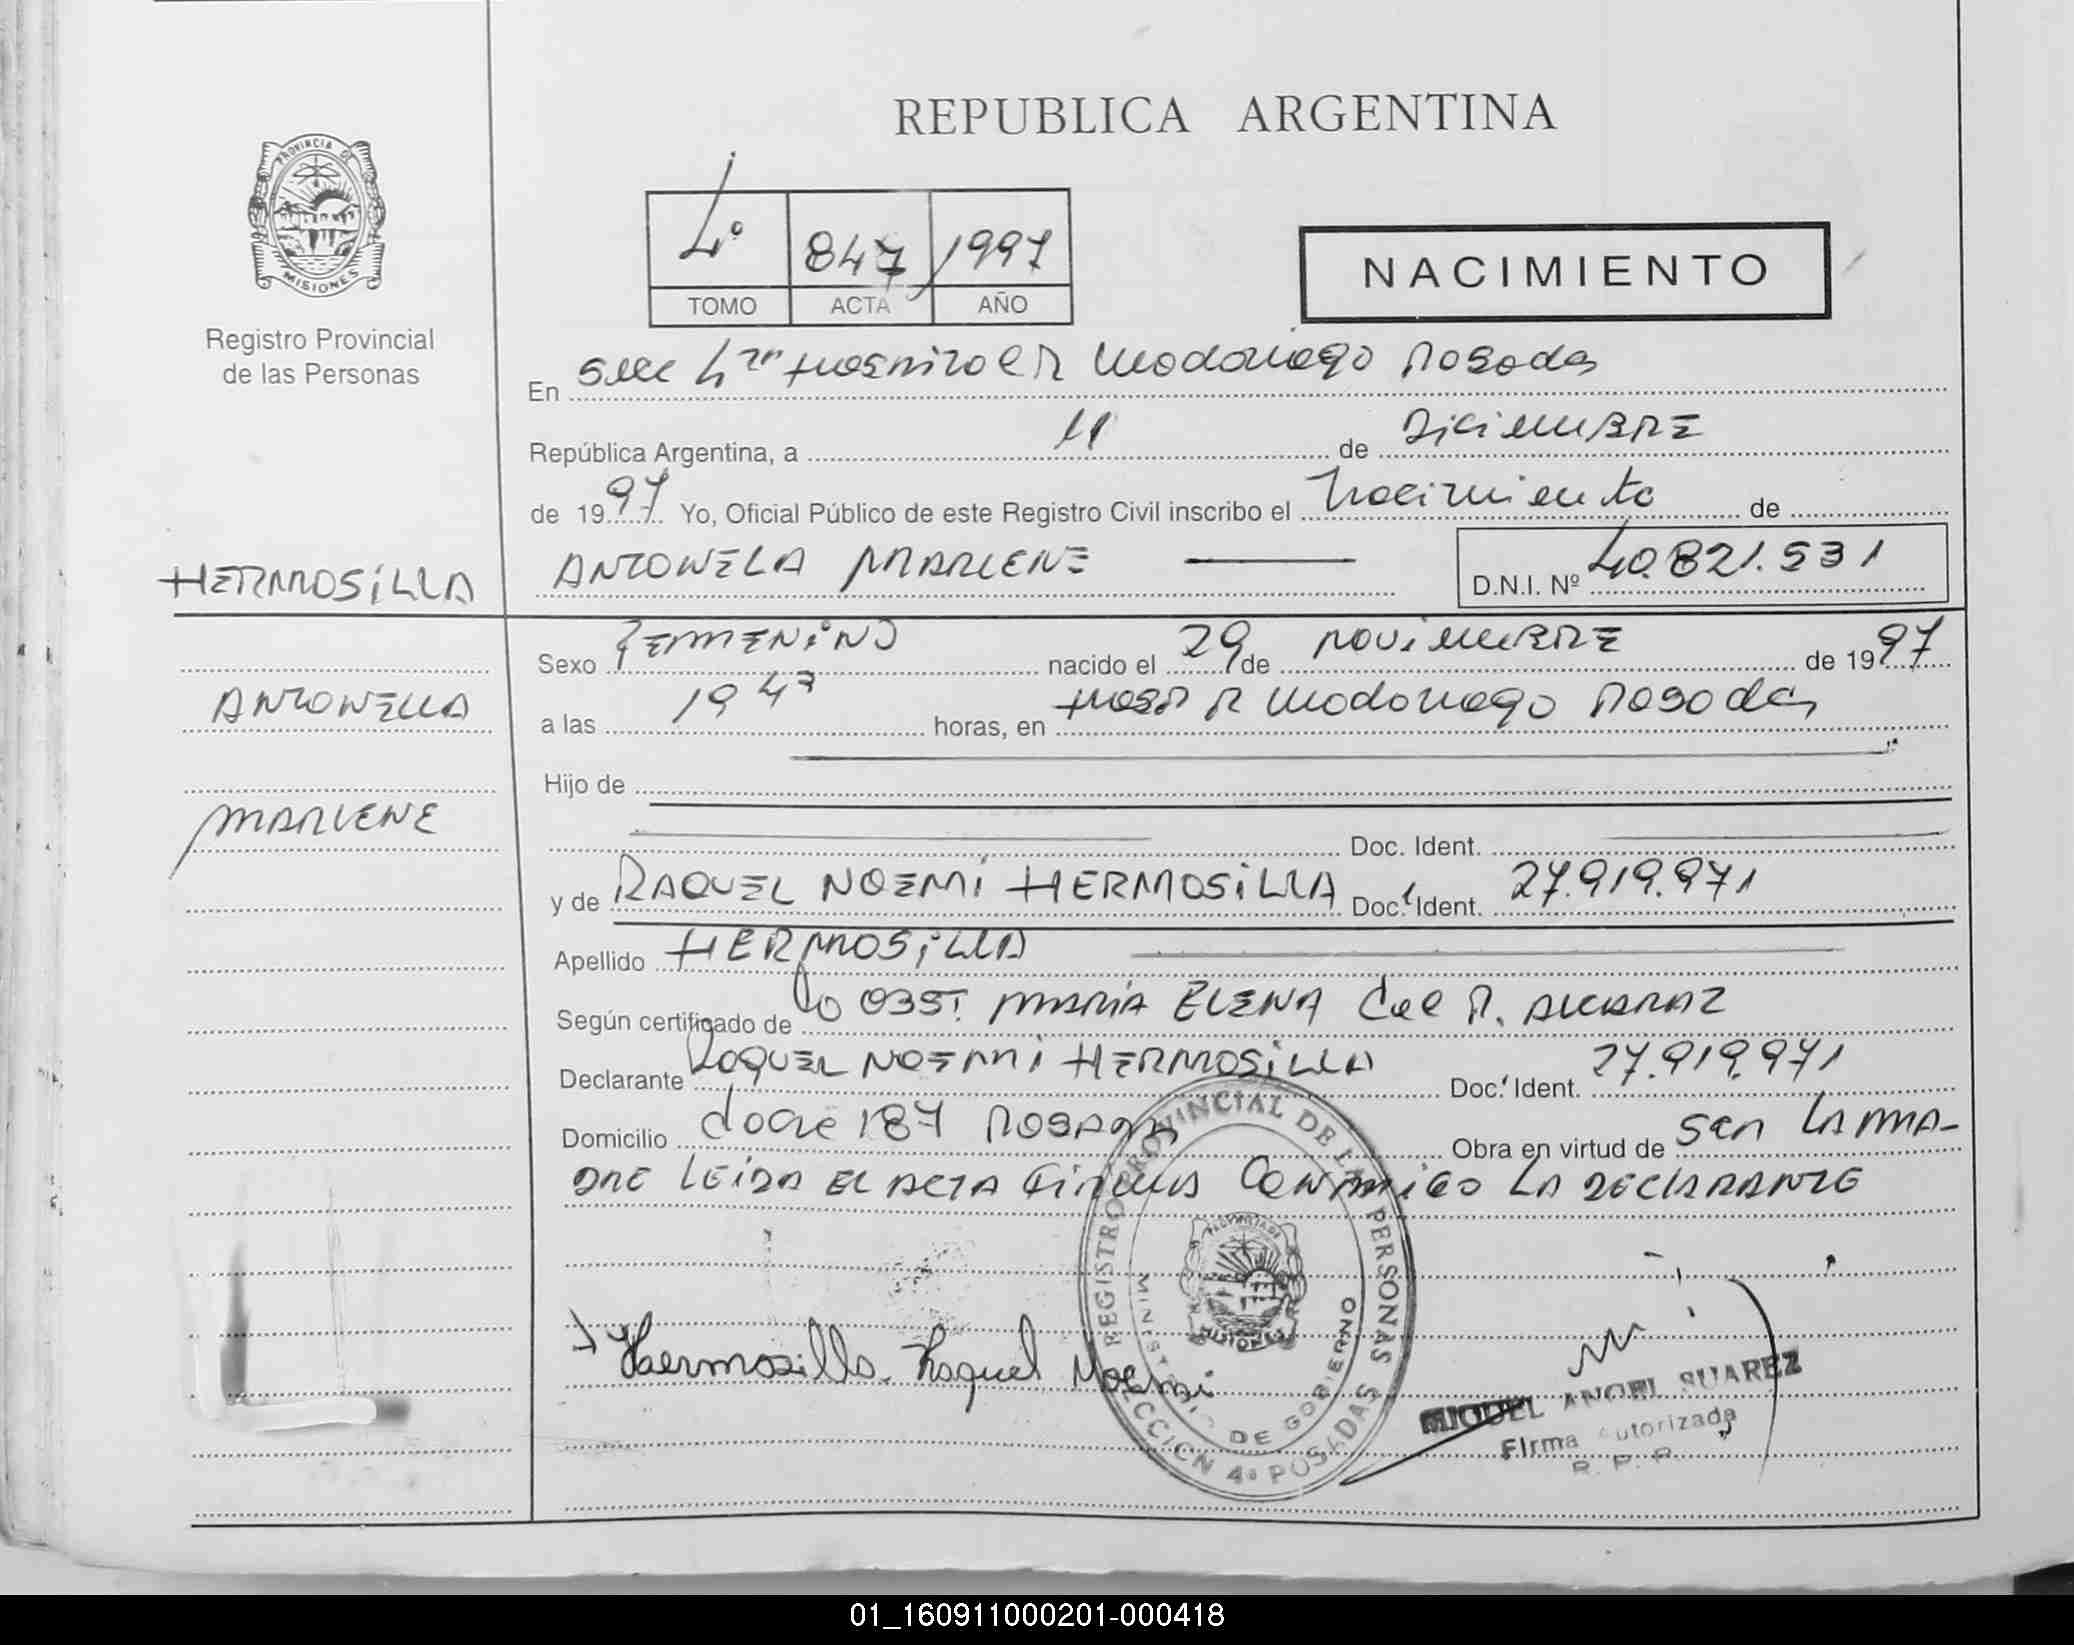 REPUBLICA ARGENTINA
PROVINCIA DE
MISIONES
Registro Provincial
de las Personas
4º 847 1997
TOMO ACTA AÑO
NACIMIENTO
En Secc 4ta Hospital Dr Madariaga Posadas
República Argentina, a 11 de DiciemBRE
de 1997 Yo, Oficial Público de este Registro Civil inscribo el Nacimiento de
HERMOSiLLA
ANTONELA MARLENE D.N.I. Nº 40.821.531
Sexo FEMENiNO nacido el 29 de NOViemBRE de 1997
ANTONELLA
a las 19 47 horas, en Hosp R Madariaga Posadas
Hijo de
MARLENE
Doc. Ident.
y de RAQUEL NOEMí HERMOSiLLA Doc. Ident. 27.919.971
Apellido HERMOSiLLA
Según certificado de la OBST. MARíA ELENA del R. ALCARAZ
Declarante RAQUEL NOEMí HERMOSiLLA Doc. Ident. 27.919.971
Domicilio 187 POSADAS Obra en virtud de ser LA MA-
DRE LEiDA EL ACTA FiRMA CONMiGO LA DECLARANTE
REGISTRO PROVINCIAL DE LAS PERSONAS
MINISTERIO DE GOBIERNO
MISIONES
SECCION 4ª POSADAS
Hermosilla Raquel Noemi
MIGUEL ANGEL SUAREZ
Firma Autorizada
R. P. P.
01_160911000201-000418